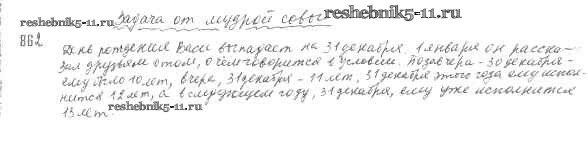 Задача от мудрой совы
reshebnik5-11.ru
862
День рождения Васи выпадает на 31 декабря. 1 января он расска-
зал друзьям о том, о чём говорится в условии. Позавчера - 30 декабря -
ему было 10 лет, вчера, 31 декабря - 11 лет, 31 декабря этого года ему испол-
нится 12 лет, а в следующем году, 31 декабря, ему уже исполнится
reshebnik5-11.ru
13 лет.